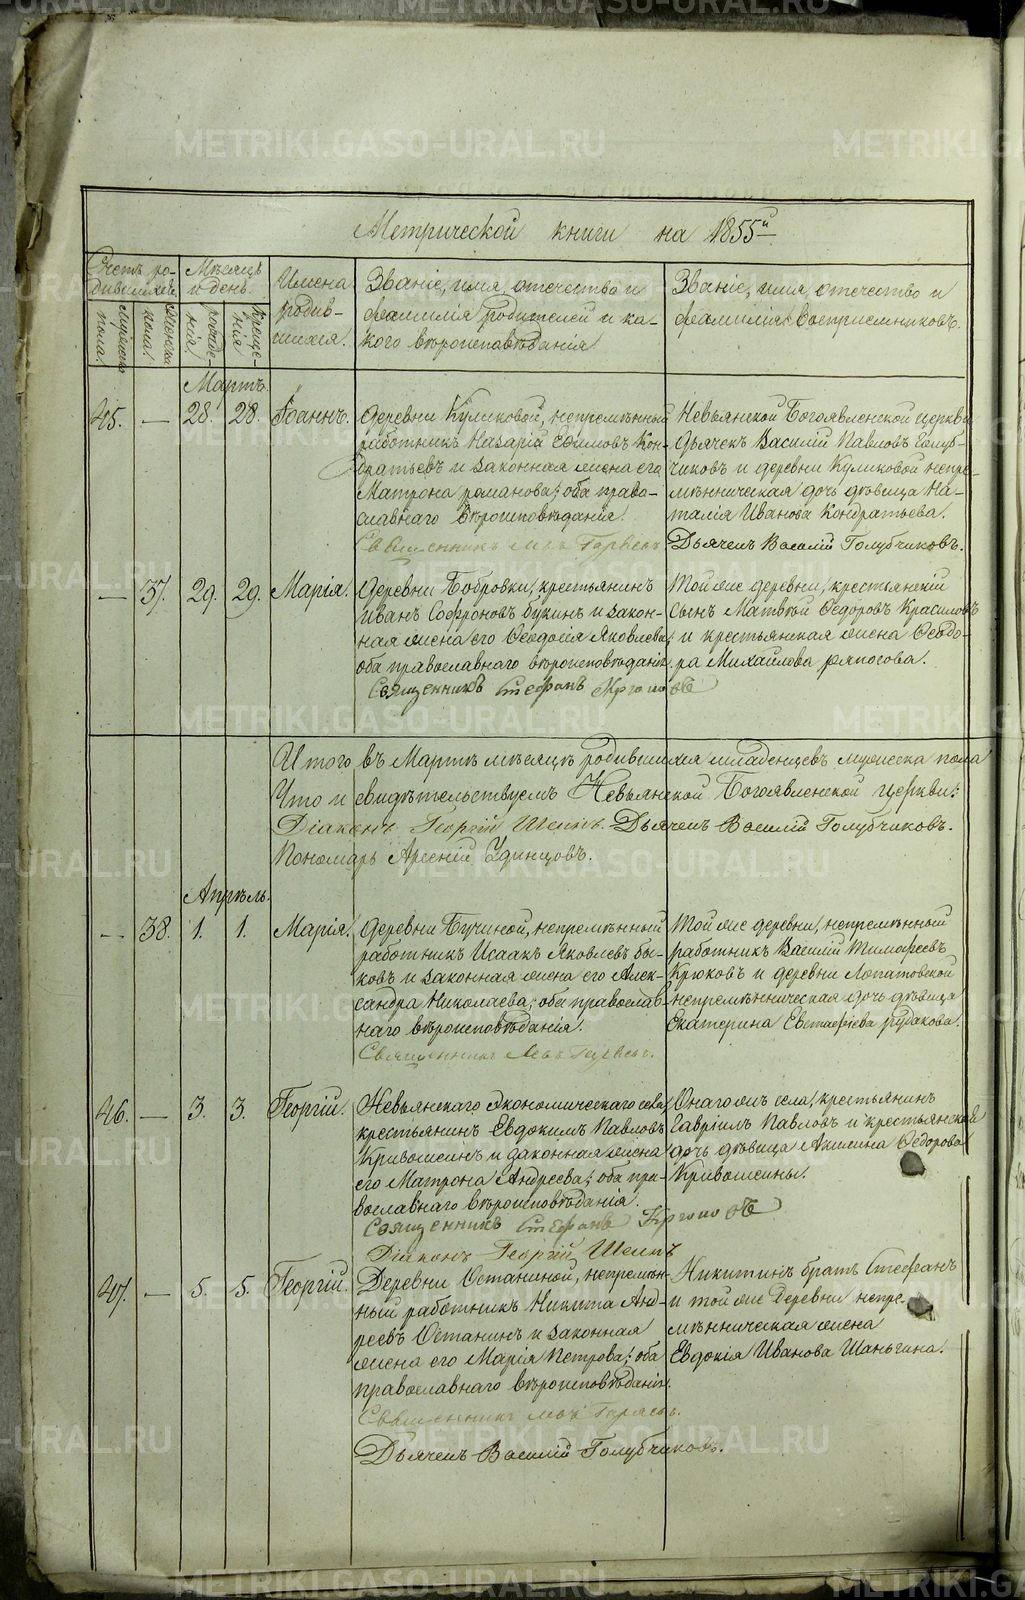 METRIKI.GASO-URAL.RU
Метрической книги на 1855й
Счетъ ро-
дившихся.
Мѣсяцъ
и день.
Имена
родив-
шихся.
Званіе, имя, отечество и
фамилія родителей и ка-
кого вѣроисповѣданія
Званіе, имя отечество и
фамилія воспріемниковъ.
мужеска
пола.
женска
пола.
рожде-
нія.
креще-
нія
Мартъ.
45. — 28. 28. Іоаннъ.
Деревни Куликовой, непремѣнный
работникъ Назарій Ефимовъ Кон-
дратьевъ и законная жена его
Матрона романова; оба право-
славнаго вѣроисповѣданія.
Священникъ
Невьянской Богоявленской церкви
Дьячекъ Василій Павловъ Голуб-
чиковъ и деревни Куликовой непре-
мѣнническая дочь дѣвица На-
талія Иванова Кондратьева.
Дьячекъ Василій Голубчиковъ.
— 37. 29. 29. Марія.
Деревни Бобровки, крестьянинъ
Иванъ Софроновъ букинъ и закон-
ная жена его Феодосія Яковлева;
оба православнаго вѣроисповѣданія.
Священникъ Стефанъ
Той же деревни, крестьянскій
сынъ Матвѣй Федоровъ Красиловъ
и крестьянская жена Феодо-
ра Михаилова ряпосова.
Итого въ Мартѣ мѣсяцѣ родившихся младенцевъ мужеска пола
Что и свидѣтельствуемъ Невьянской Богоявленской церкви:
Діаконъ Георгій Дьячекъ Василій Голубчиковъ.
Пономарь Арсеній Удинцовъ.
Апрѣль.
— 38. 1. 1. Марія.
Деревни Бучиной, непремѣнный
работникъ Исаакъ Яковлевъ бы-
ковъ и законная жена его Алек-
сандра Николаева; оба православ-
наго вѣроисповѣданія.
Священникъ
Той же деревни, непремѣнный
работникъ Василій Тимофеевъ
Крюковъ и деревни Лопатовской
непремѣнническая дочь дѣвица
Екатерина Евстафіева рудакова.
46. — 3. 3. Георгій.
Невьянскаго Экономическаго села,
крестьянинъ Евдокимъ Павловъ
Кривошеинъ и законная жена
его Матрона Андреева; оба пра-
вославнаго вѣроисповѣданія.
Священникъ Стефанъ
Діаконъ Георгій
Онаго жъ села, крестьянинъ
Гавріилъ Павловъ и крестьянская
дочь дѣвица Акилина Федорова
Кривошеины.
47. — 5. 5. Георгій.
Деревни Останиной, непремѣн-
ный работникъ Никита Анд-
реевъ Останинъ и законная
жена его Марія Петрова; оба
православнаго вѣроисповѣданія.
Священникъ
Дьячекъ Василій Голубчиковъ.
Никитинъ братъ Стефанъ
и той же деревни непре-
мѣнническая жена
Евдокія Иванова Шаньгина.